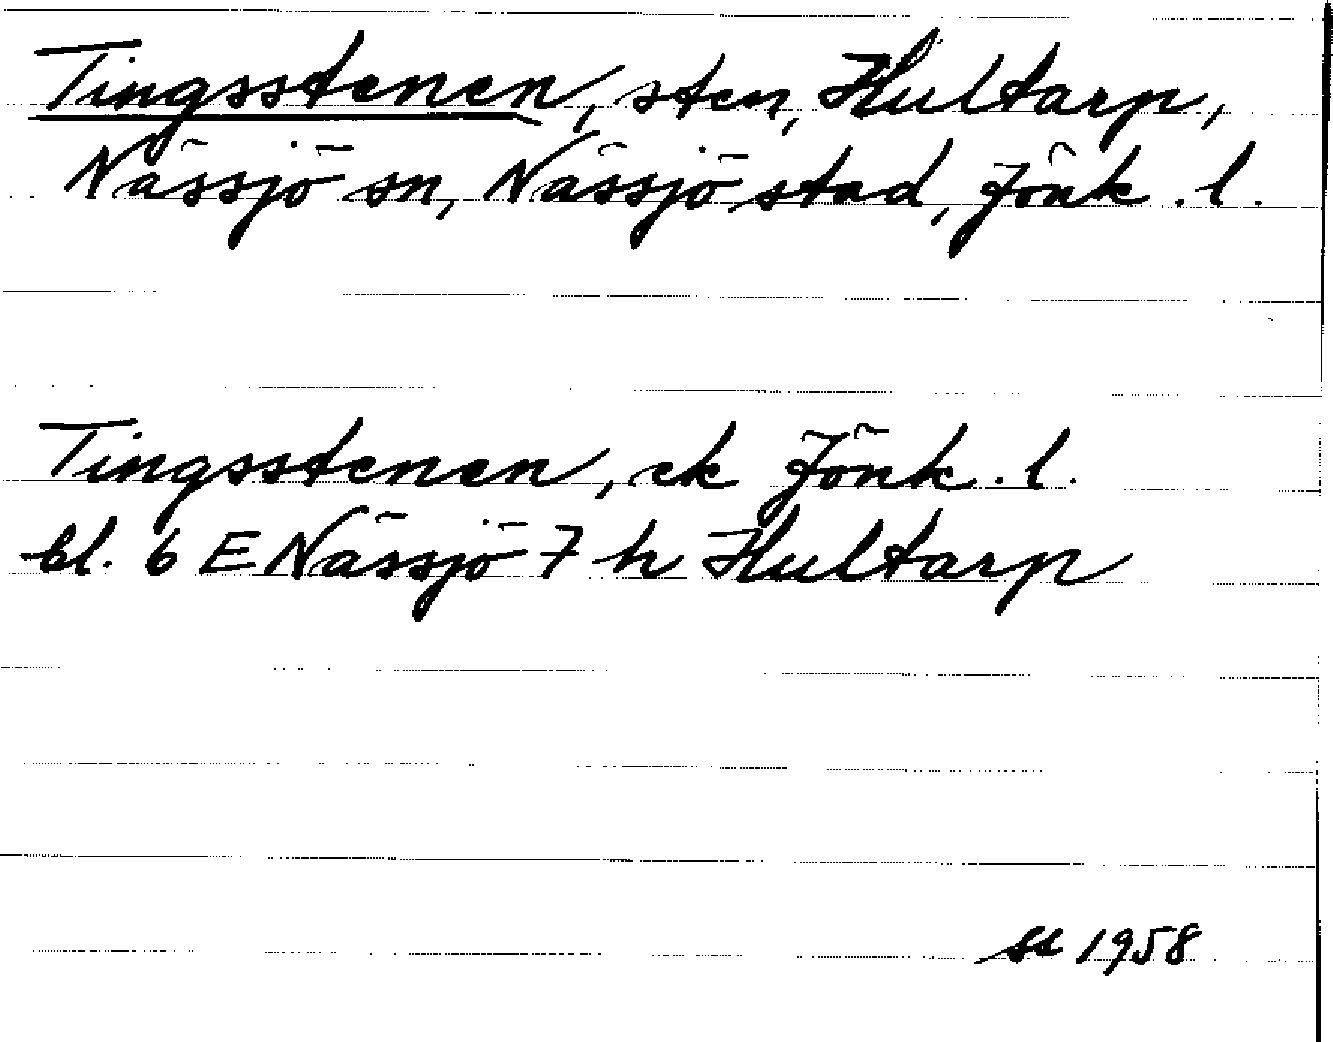 Tingsstenen, sten, Hultarp,
Nässjö sn, Nässjö stad, Jönk. l.
Tingsstenen, ek Jönk. l.
bl. 6 E Nässjö 7 h Hultarp
1958